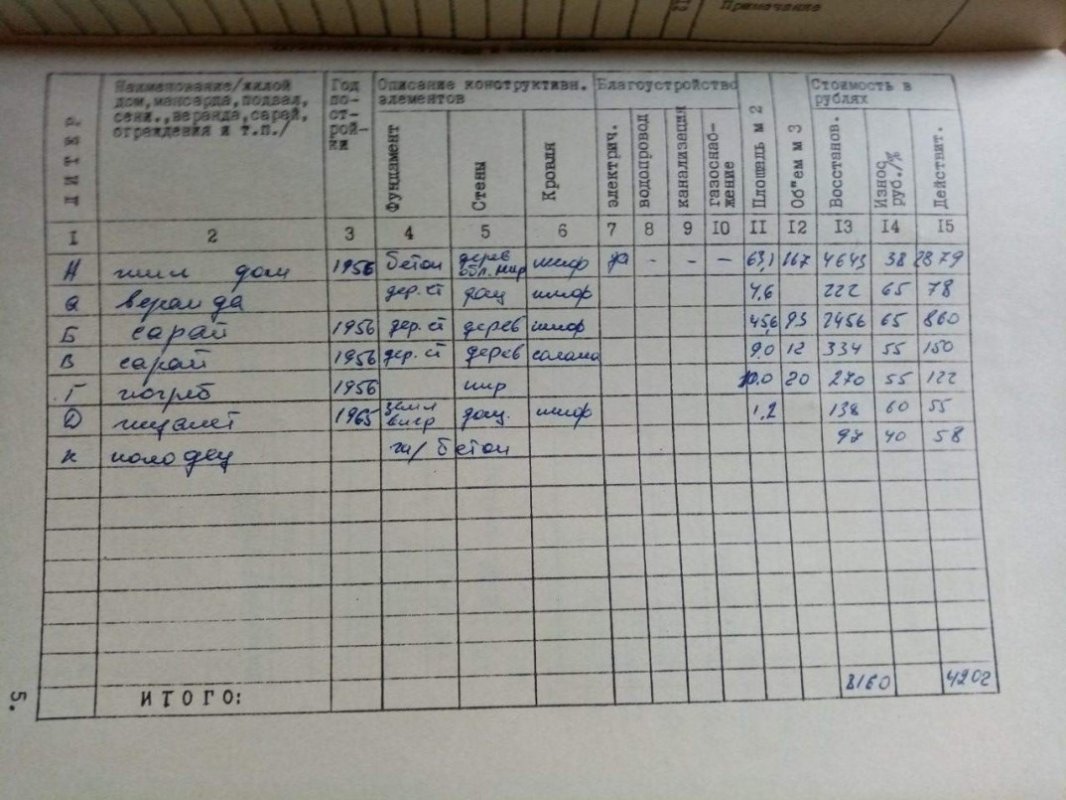 Примечание
ЛИТЕР
Наименование/жилой дом, мансарда, подвал, сени, веранда, сарай, ограждения и т.п./
Год по-ст-рой-ки
Описание конструктивн. элементов
Благоустройство
Площадь м 2
Об"ем м 3
Стоимость в рублях
Фундамент
Стены
Кровля
электрич.
водопровод
канализация
газоснаб-жение
Восстанов.
Износ руб./%
Действит.
1 2 3 4 5 6 7 8 9 10 11 12 13 14 15
А жил дом 1956 бетон дерев обл. кир шиф да - - - 63,1 167 4643 38 2879
а веранда дер. ст дощ шиф 4,6 222 65 78
Б сарай 1956 дер. ст дерев шиф 45,6 93 2456 65 860
В сарай 1956 дер. ст дерев солома 9,0 12 334 55 150
Г погреб 1956 кир 10.0 20 270 55 122
Д туалет 1965 земл выгр дощ. шиф 1,2 138 60 55
к колодец ж/бетон 97 40 58
ИТОГО: 8160 4202
5.